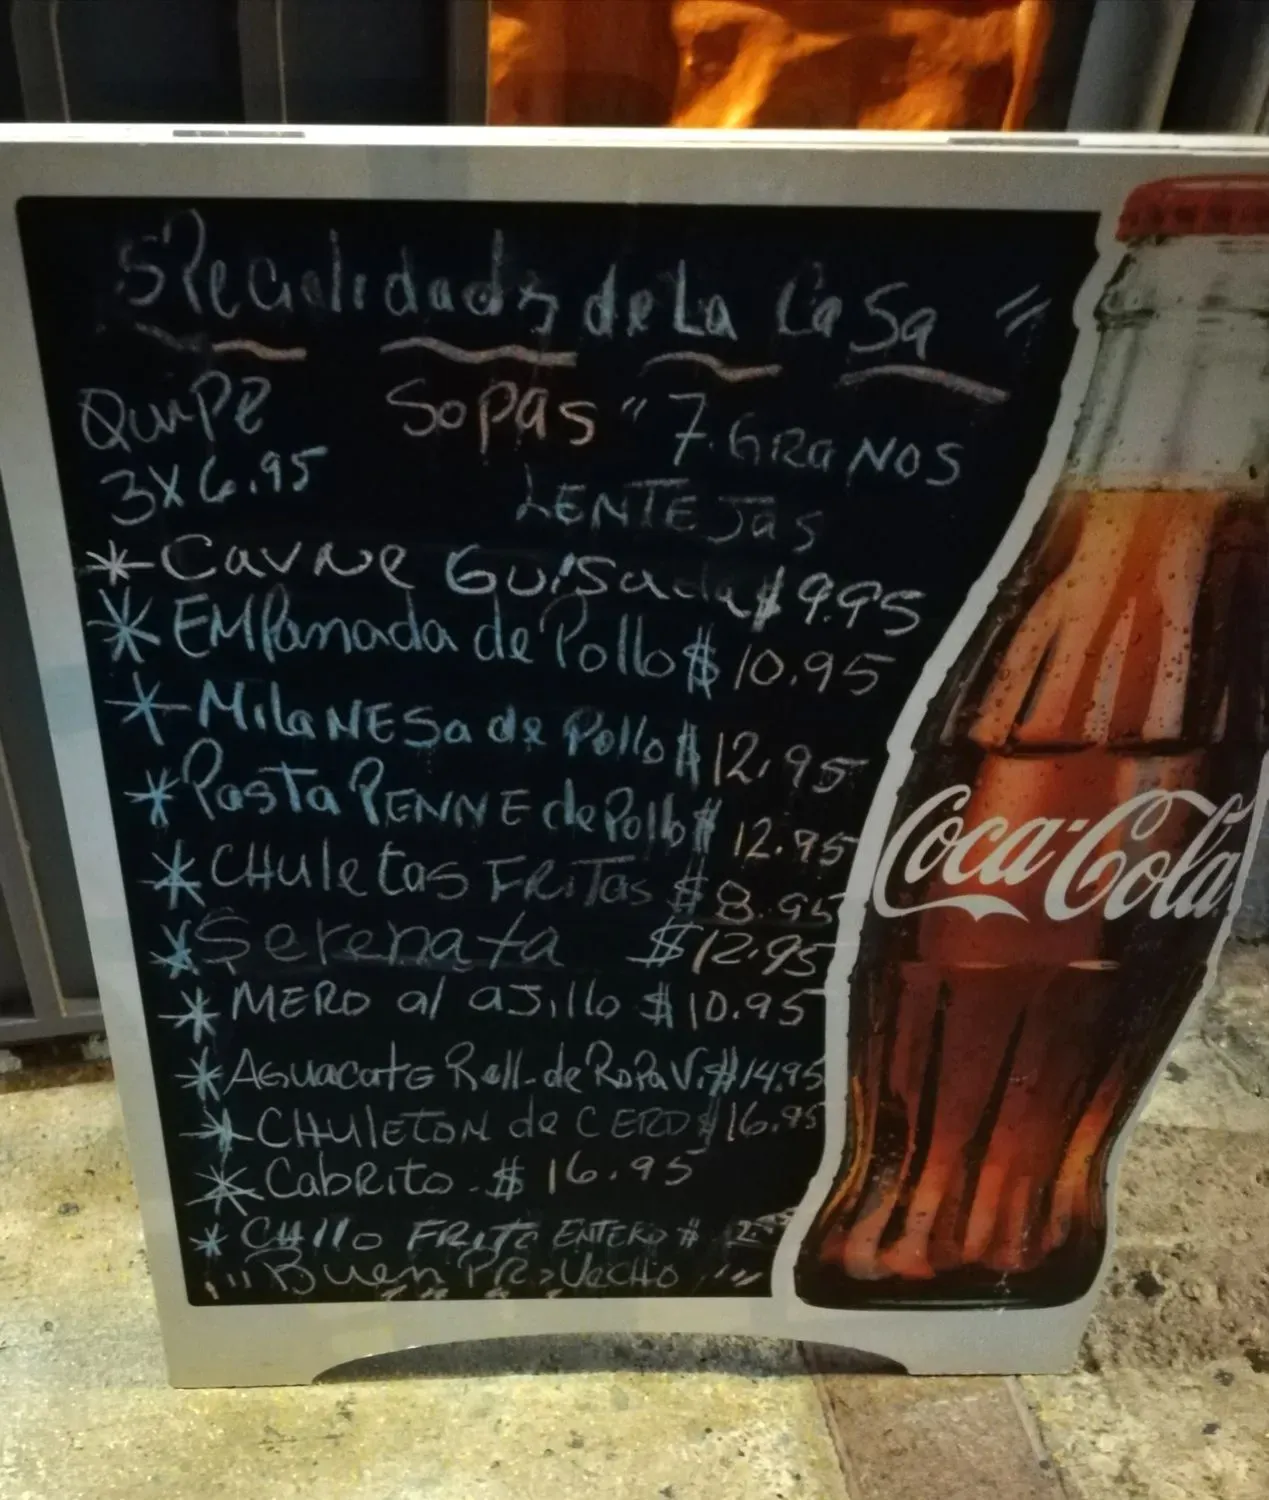 Specialidads de La Casa "
Quipe Sopas "7 GRaNOS
3X6.95 LENTEJas
* Carne Guisada $9.95
* EMPanada de Pollo $10.95
* MilaNESa de Pollo $12.95
* Pasta PENNE de Pollo $12.95
* CHuletas FRiTas $8.95
* Serenata $12.95
* MERO al aJillo $10.95
* AGuacate Roll de RoPa Vi $14.95
* CHULETON de CERDO $16.95
* CabRito - $16.95
* CHillo FRITO ENTERO $
"Buen PRoVecHo"
Coca-Cola